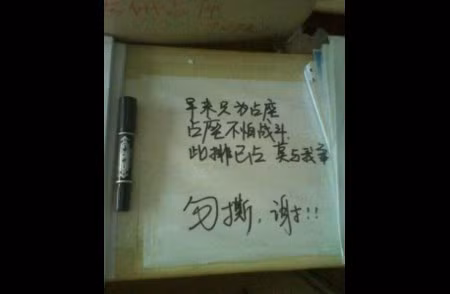 早来只为占座
占座不怕战斗
此排已占 莫与我争
勿撕，谢!!